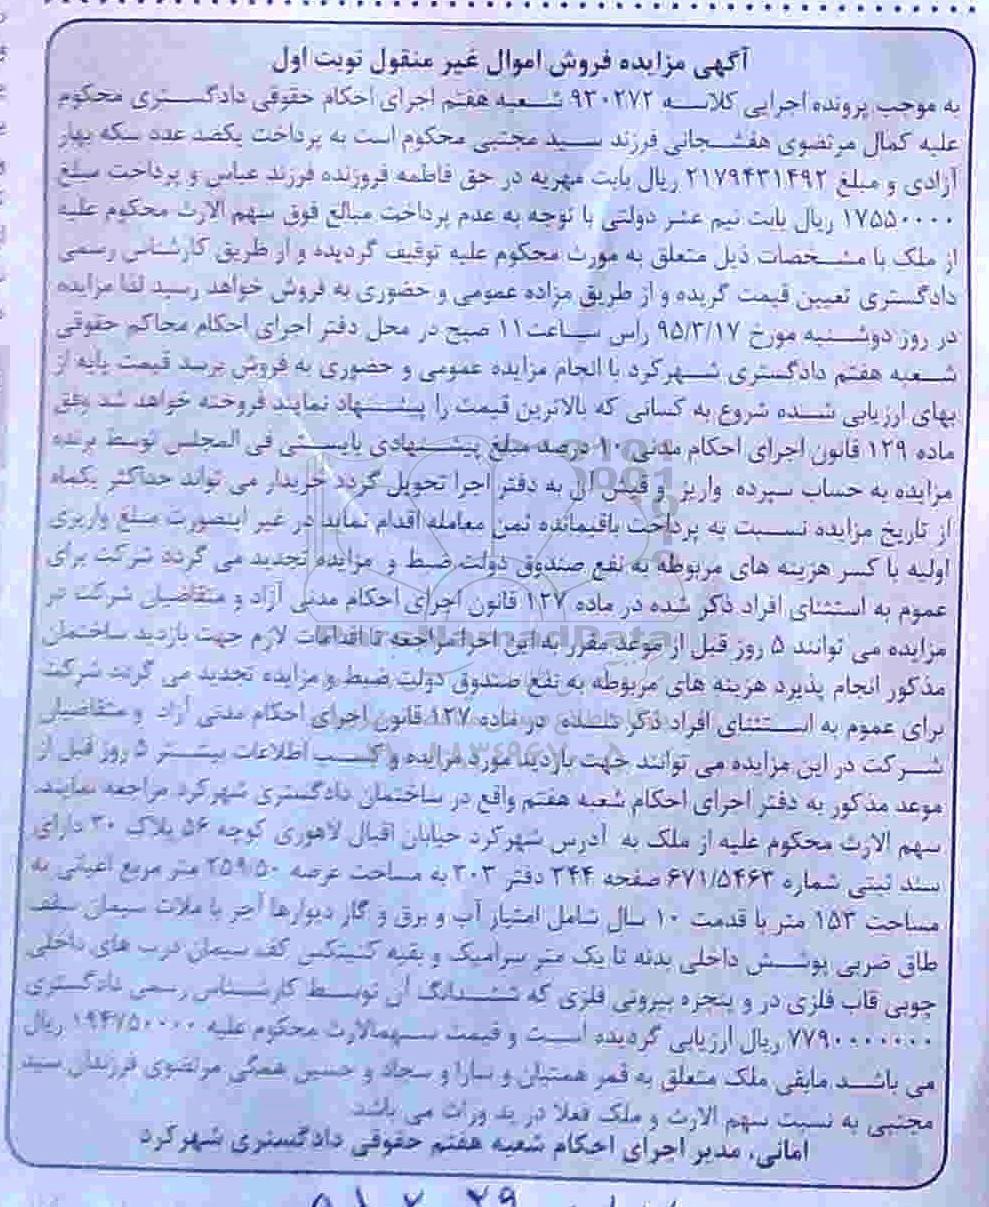 آگهی مزایده فروش اموال غیر منقول نوبت اول
به موجب پرونده اجرایی کلاسه ۹۳۰۲۷۲ شعبه هفتم اجرای احکام حقوقی دادگستری محکوم
علیه کمال مرتضوی هفشجانی فرزند سید مجتبی محکوم است به پرداخت یکصد عدد سکه بهار
آزادی و مبلغ ۲۱۷۹۴۳۱۴۹۲ ریال بابت مهریه در حق فاطمه فروزنده فرزند عباس و پرداخت مبلغ
۱۷۵۵۰۰۰۰ ریال بابت نیم عشر دولتی با توجه به عدم پرداخت مبالغ فوق سهم الارث محکوم علیه
از ملک با مشخصات ذیل متعلق به مورث محکوم علیه توقیف گردیده و از طریق کارشناس رسمی
دادگستری تعیین قیمت گریده و از طریق مزاده عمومی و حضوری به فروش خواهد رسید لذا مزایده
در روز دوشنبه مورخ ۹۵/۳/۱۷ راس ساعت۱۱ صبح در محل دفتر اجرای احکام محاکم حقوقی
شعبه هفتم دادگستری شهرکرد با انجام مزایده عمومی و حضوری به فروش برسد قیمت پایه از
بهای ارزیابی شده شروع به کسانی که بالاترین قیمت را پیشنهاد نمایند فروخته خواهد شد وفق
ماده ۱۲۹ قانون اجرای احکام مدنی ۱۰ درصد مبلغ پیشنهادی بایستی فی المجلس توسط برنده
مزایده به حساب سپرده واریز و فیش آن به دفتر اجرا تحویل گردد خریدار می تواند حداکثر یکماه
از تاریخ مزایده نسبت به پرداخت باقیمانده ثمن معامله اقدام نماید در غیر اینصورت مبلغ واریزی
اولیه با کسر هزینه های مربوطه به نفع صندوق دولت ضبط و مزایده تجدید می گردد شرکت برای
عموم به استثنای افراد ذکر شده در ماده ۱۲۷ قانون اجرای احکام مدنی آزاد و متقاضیان شرکت در
مزایده می توانند ۵ روز قبل از موعد مقرر به این اجرا مراجعه تا اقدامات لازم جهت بازدید ساختمان
مذکور انجام پذیرد هزینه های مربوطه به نفع صندوق دولت ضبط و مزایده تجدید می گردد شرکت
برای عموم به استثنای افراد ذکر شده در ماده ۱۲۷ قانون اجرای احکام مدنی آزاد و متقاضیان
شرکت در این مزایده می توانند جهت بازدید مورد مزایده و کسب اطلاعات بیشتر ۵ روز قبل از
موعد مذکور به دفتر اجرای احکام شعبه هفتم واقع در ساختمان دادگستری شهرکرد مراجعه نمایند.
سهم الارث محکوم علیه از ملک به آدرس شهرکرد خیابان اقبال لاهوری کوچه ۵۶ پلاک ۳۰ دارای
سند ثبتی شماره ۶۷۱/۵۴۶۳ صفحه ۳۴۴ دفتر ۳۰۳ به مساحت عرصه ۲۵۹/۵۰ متر مربع اعیانی به
مساحت ۱۵۳ متر با قدمت ۱۰ سال شامل امتیاز آب و برق و گاز دیوارها آجر با ملات سیمان سقف
طاق ضربی پوشش داخلی بدنه تا یک متر سرامیک و بقیه کنیتکس کف سیمان درب های داخلی
چوبی قاب فلزی در و پنجره بیرونی فلزی که ششدانگ آن توسط کارشناس رسمی دادگستری
۷۷۹۰۰۰۰۰۰۰ ریال ارزیابی گردیده است و قیمت سهمالارث محکوم علیه ۱۹۴۷۵۰۰۰۰ ریال
می باشد مابقی ملک متعلق به قمر همتیان و سارا و سجاد و حسین همگی مرتضوی فرزندان سید
مجتبی به نسبت سهم الارث و ملک فعلا در ید وراث می باشد
امانی، مدیر اجرای احکام شعبه هفتم حقوقی دادگستری شهرکرد